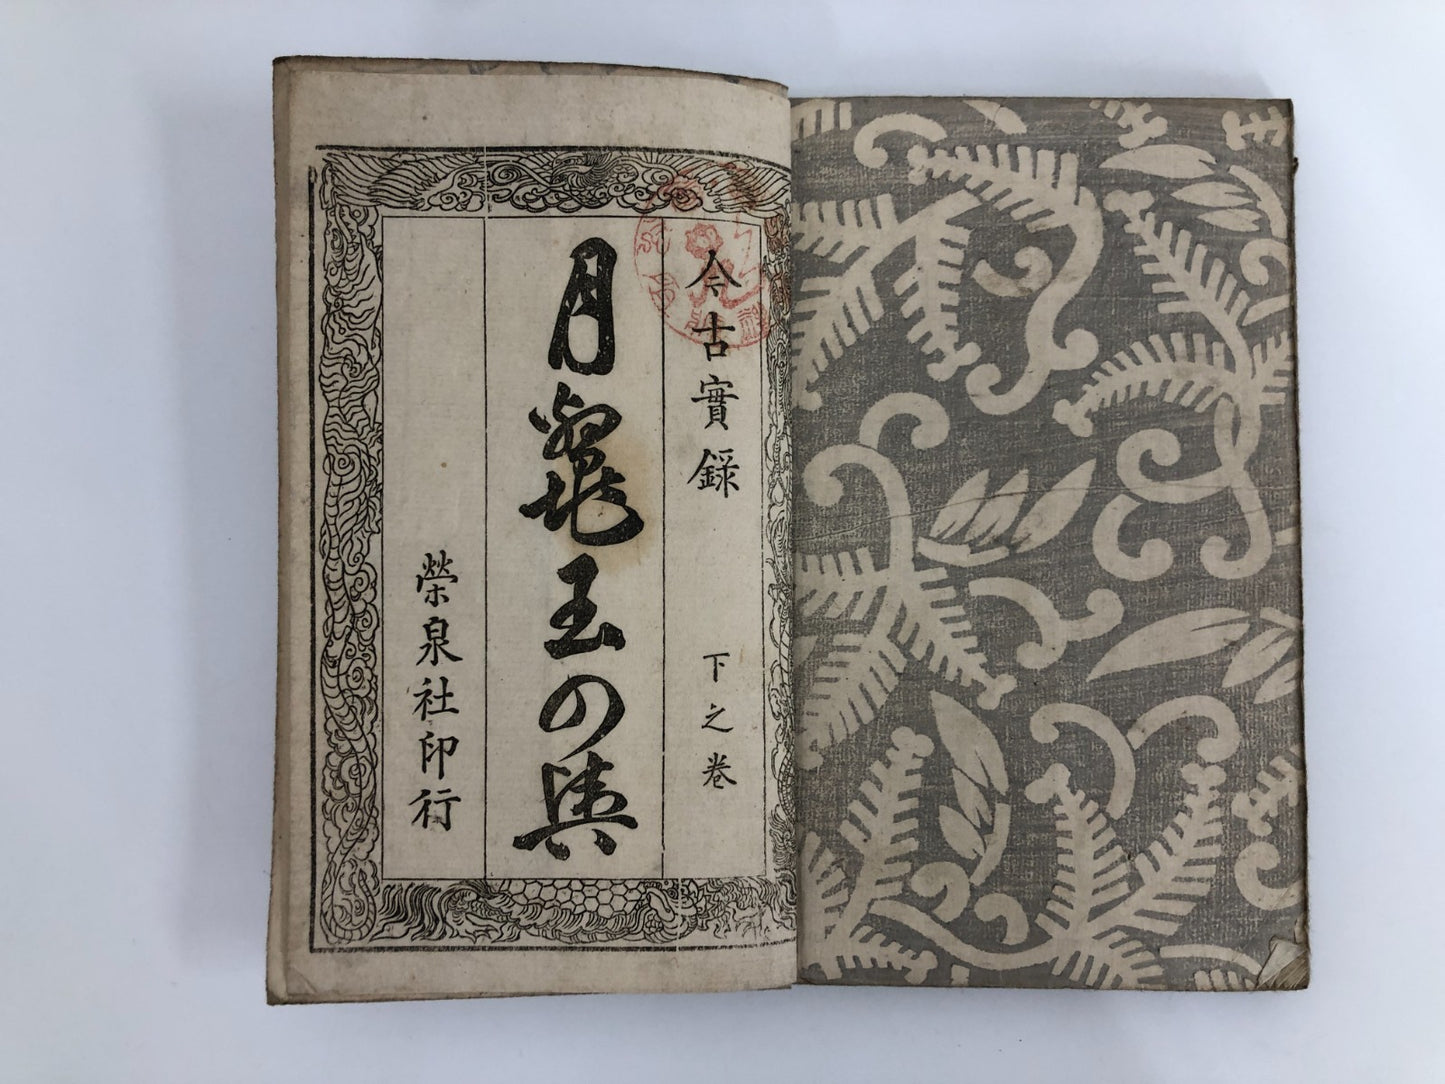 今古實録 下之巻
月鼈玉の輿
榮泉社印行